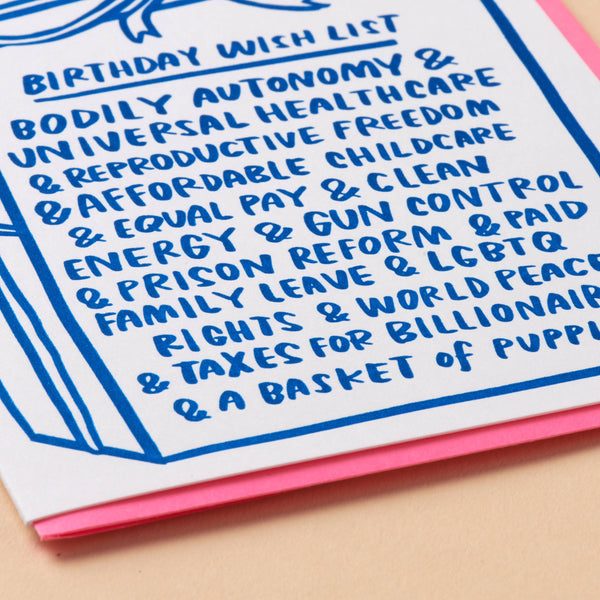 BIRTHDAY WISH LIST
BODILY AUTONOMY &
UNIVERSAL HEALTHCARE
& REPRODUCTIVE FREEDOM
& AFFORDABLE CHILDCARE
& EQUAL PAY & CLEAN
ENERGY & GUN CONTROL
& PRISON REFORM & PAID
FAMILY LEAVE & LGBTQ
RIGHTS & WORLD PEACE
& TAXES FOR BILLIONAIR
& A BASKET of PUPPI